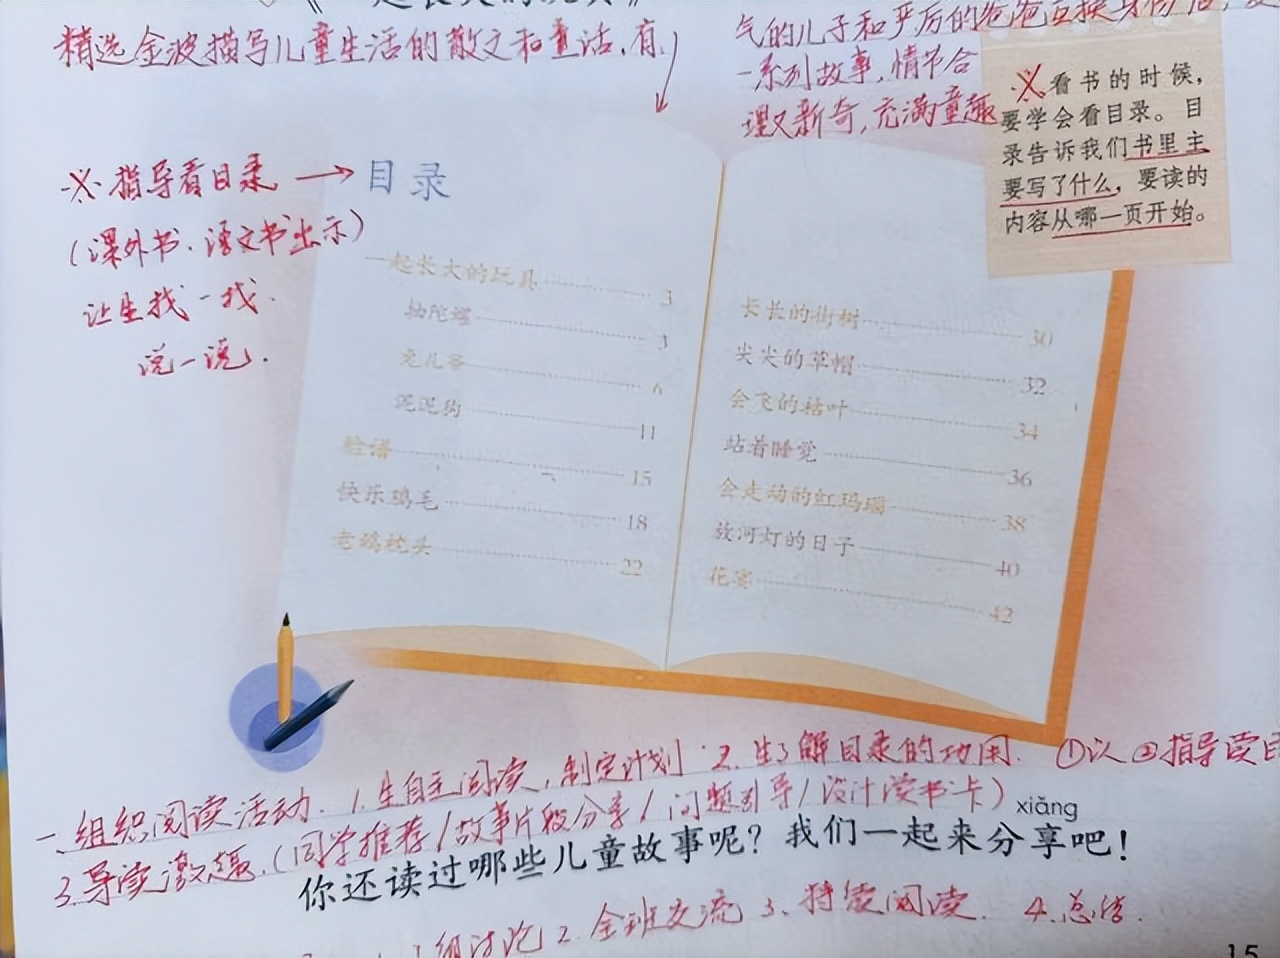 精选金波描写儿童生活的散文和童话,有
气的儿子和严厉的爸爸互换身份后,
一系列故事,情节合
理又新奇,充满童趣
※看书的时候,
要学会看目录。目
录告诉我们书里主
要写了什么,要读的
内容从哪一页开始。
※指导看目录→目录
(课外书、语文书出示)
让生找一找.
说一说.
一起长大的玩具 3
抽陀螺 3
兔儿爷 6
泥泥狗 11
脸谱 15
快乐鸡毛 18
老鸡枕头 22
长长的街树 30
尖尖的草帽 32
会飞的枯叶 34
站着睡觉 36
会走动的红玛瑙 38
放河灯的日子 40
花宴 42
一、组织阅读活动. 1.生自主阅读,制定计划 2.生了解目录的功用. ①以②指导读目
3.导读激趣.(同学推荐/故事片段分享/问题引导/设计读书卡)
xiǎng
你还读过哪些儿童故事呢?我们一起来分享吧!
组讨论 2.全班交流 3.持续阅读. 4.总结.
15